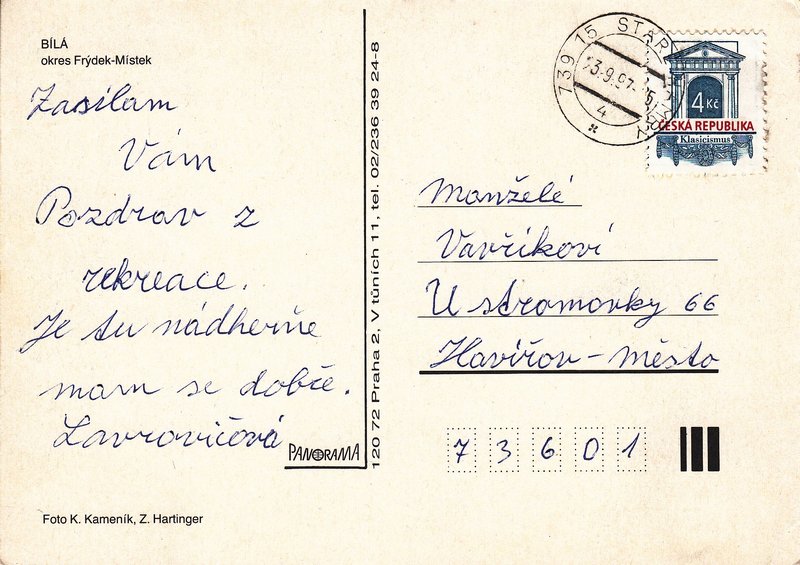 BÍLÁ
okres Frýdek-Místek
Zasílam
Vám
Pozdrav z
rekreace.
Je tu nádherňe
mam se dobře.
Lavrovičová
PANORAMA
Foto K. Kameník, Z. Hartinger
120 72 Praha 2, V tůních 11, tel. 02/236 39 24-8
739 15 STAR
13.9.97
4
4 Kč
ČESKÁ REPUBLIKA
Klasicismus
Manželé
Vavříkovi
U stromovky 66
Havířov - město
7 3 6 0 1